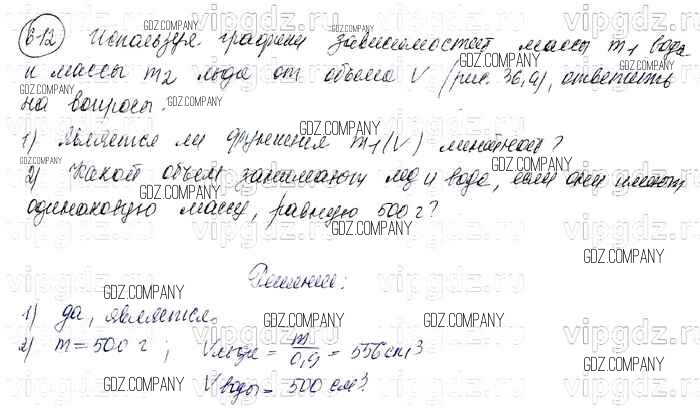 6.12 Используя графики зависимостей массы m1 воды
и массы m2 льда от объема V (рис. 36,а), ответить
на вопросы.
1) является ли функция m1(V) линейной?
2) какой объем занимают лед и вода, если они имеют
одинаковую массу, равную 500 г?
Решение:
1) да, является.
2) m = 500 г ; Vльда = m/0,9 = 556 см³
Vводы = 500 см³.
GDZ.COMPANY
vipgdz.ru